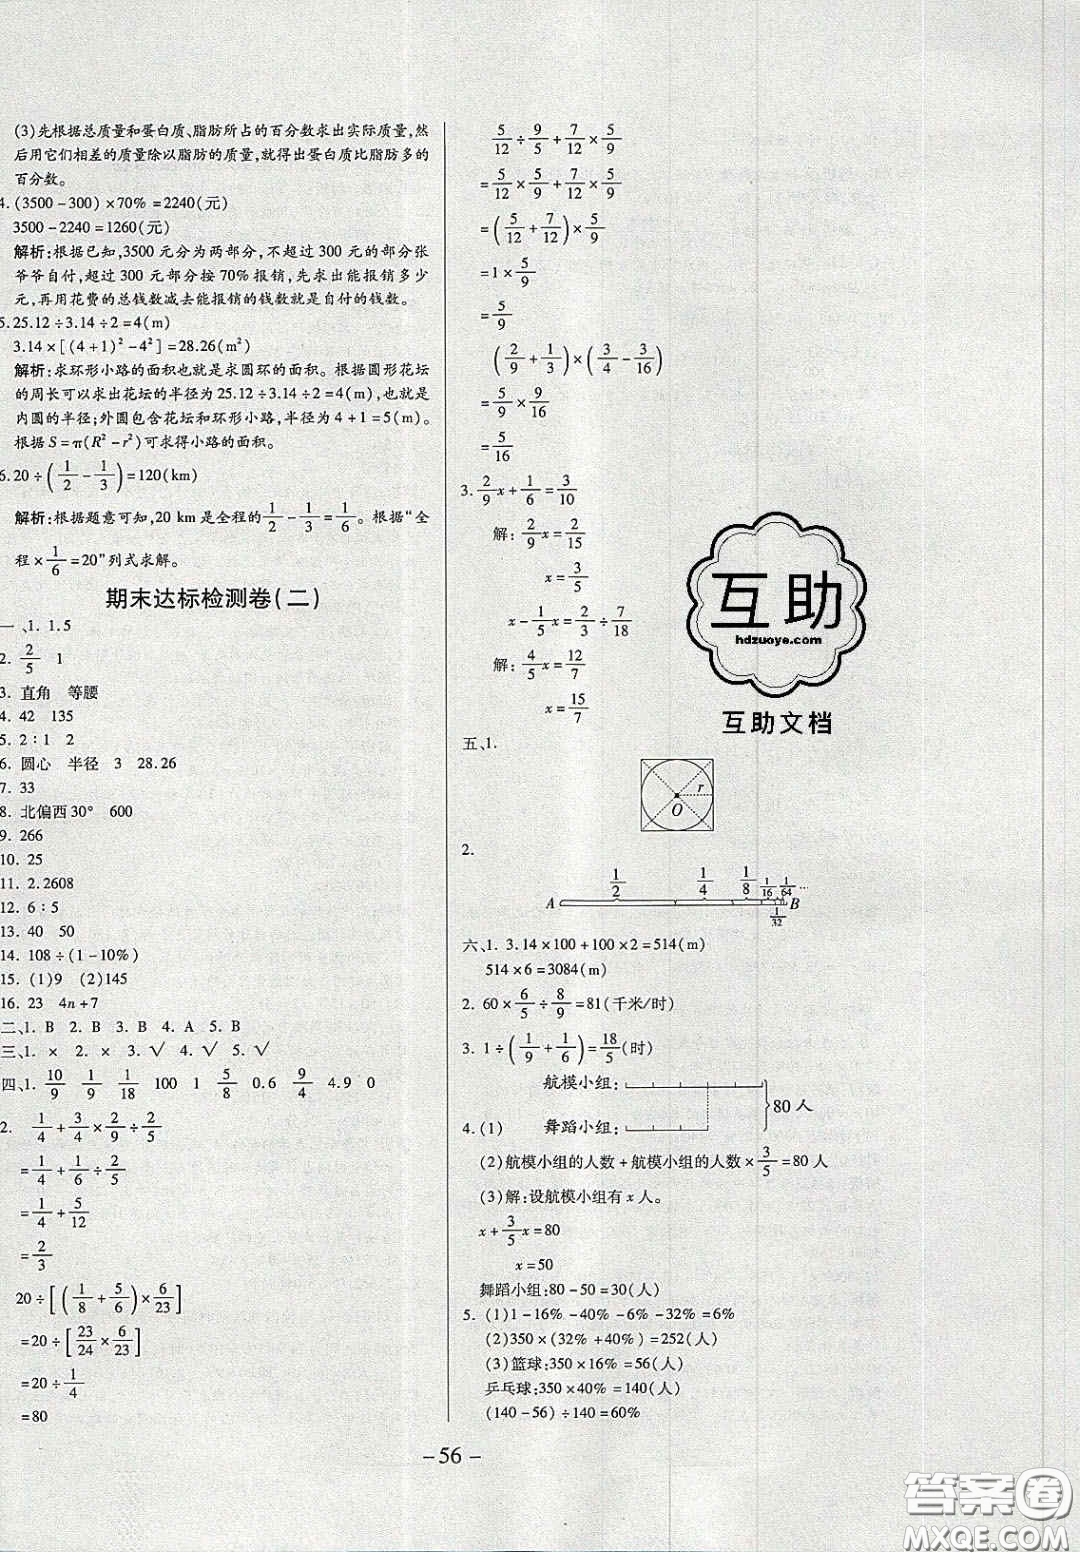 (3)先根据总质量和蛋白质、脂肪所占的百分数求出实际质量,然
后用它们相差的质量除以脂肪的质量,就得出蛋白质比脂肪多的
百分数。
4. (3500-300)×70%=2240(元)
3500-2240=1260(元)
解析:根据已知,3500元分为两部分,不超过300元的部分张
爷爷自付,超过300元部分按70%报销,先求出能报销多少
元,再用花费的总钱数减去能报销的钱数就是自付的钱数。
5. 25.12÷3.14÷2=4(m)
3.14×[(4+1)²-4²]=28.26(m²)
解析:求环形小路的面积也就是求圆环的面积。根据圆形花坛
的周长可以求出花坛的半径为25.12÷3.14÷2=4(m),也就是
内圆的半径;外圆包含花坛和环形小路,半径为4+1=5(m)。
根据S=π(R²-r²)可求得小路的面积。
6. 20÷(1/2-1/3)=120(km)
解析:根据题意可知,20 km是全程的1/2-1/3=1/6。根据“全
程×1/6=20”列式求解。
期末达标检测卷(二)
一、1. 1.5
2. 2/5 1
3. 直角 等腰
4. 42 135
5. 2:1 2
6. 圆心 半径 3 28.26
7. 33
8. 北偏西30° 600
9. 266
10. 25
11. 2.2608
12. 6:5
13. 40 50
14. 108÷(1-10%)
15. (1)9 (2)145
16. 23 4n+7
二、1. B 2. B 3. B 4. A 5. B
三、1. × 2. × 3. √ 4. √ 5. √
四、1. 10/9 1/9 1/18 100 1 5/8 0.6 9/4 4.9 0
2. 1/4+3/4×2/9÷2/5
=1/4+1/6÷2/5
=1/4+5/12
=2/3
20÷[(1/8+5/6)×6/23]
=20÷[23/24×6/23]
=20÷1/4
=80
5/12÷9/5+7/12×5/9
=5/12×5/9+7/12×5/9
=(5/12+7/12)×5/9
=1×5/9
=5/9
(2/9+1/3)×(3/4-3/16)
=5/9×9/16
=5/16
3. 2/9x+1/6=3/10
解:2/9x=2/15
x=3/5
x-1/5x=2/3÷7/18
解:4/5x=12/7
x=15/7
五、1.
r
O
2.
1/2 1/4 1/8 1/16 1/64 …
A B
1/32
六、1. 3.14×100+100×2=514(m)
514×6=3084(m)
2. 60×6/5÷8/9=81(千米/时)
3. 1÷(1/9+1/6)=18/5(时)
航模小组:
80人
4. (1) 舞蹈小组:
(2)航模小组的人数+航模小组的人数×3/5=80人
(3)解:设航模小组有x人。
x+3/5x=80
x=50
舞蹈小组:80-50=30(人)
5. (1)1-16%-40%-6%-32%=6%
(2)350×(32%+40%)=252(人)
(3)篮球:350×16%=56(人)
乒乓球:350×40%=140(人)
(140-56)÷140=60%
-56-
互助
hdzuoye.com
互助文档
答案圈
MXQE.COM